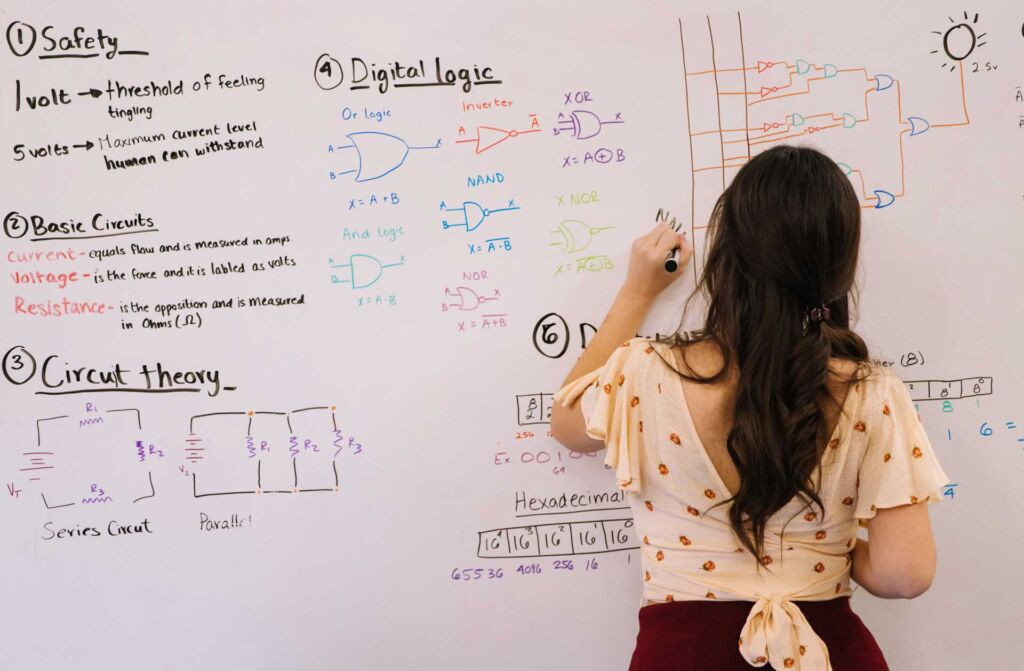 ① Safety
1 volt → threshold of feeling
tingling
5 volts → Maximum current level
human can withstand
② Basic Circuits
Current - equals flow and is measured in amps
Voltage - is the force and it is labled as volts
Resistance - is the opposition and is measured
in Ohms (Ω)
③ Circuit theory
R₁
R₂
R₃
V_T
Series Circut
V₂
R₁
R₂
R₃
Parallel
④ Digital logic
Or logic
A
B
X
X = A + B
Inverter
A
A̅
XOR
A
B
X
X = A ⊕ B
And logic
A
B
X
X = A · B
NAND
A
B
X
X = \overline{A · B}
X NOR
X = \overline{A ⊕ B}
NOR
A
B
X
X = \overline{A + B}
2.5v
NA
⑥ D
(8)
8¹ 8⁰
8 1
1
6 =
4
256
Ex. 0 0 1
64
Hexadecimal
16⁴ 16³ 16² 16¹ 16⁰
65536 4096 256 16 1